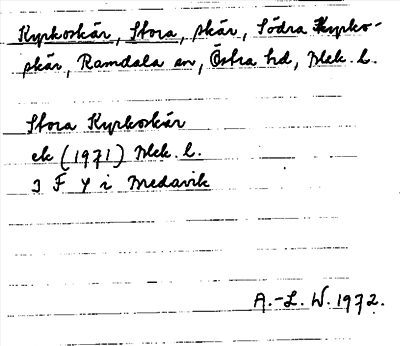 Kyrkoskär, Stora, skär, Södra Kyrko-
skär, Ramdala sn, Östra hd, Blek. l.
Stora Kyrkoskär
ek (1971) Blek. l.
3 F Y i Medavik
A.-L. W. 1972.